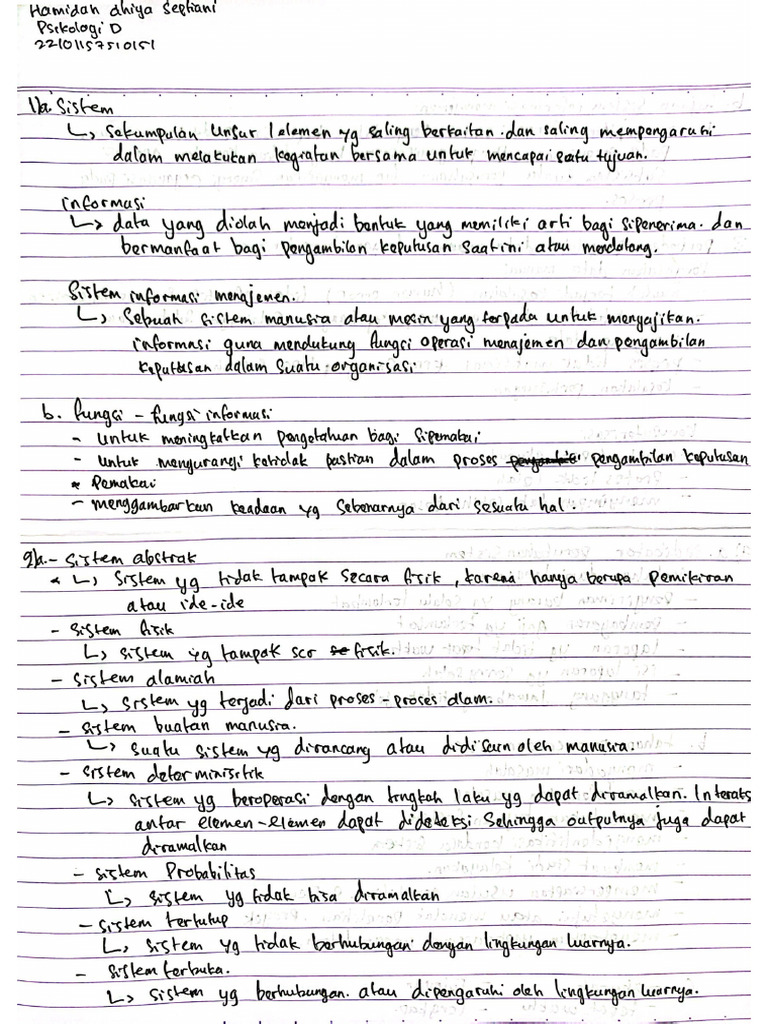 Hamidah dhiya Septiani
Psikologi D
22101157510151
1)a. Sistem
↳ Sekumpulan unsur / elemen yg saling berkaitan dan saling mempengaruhi
dalam melakukan kegiatan bersama untuk mencapai suatu tujuan.
informasi
↳ data yang diolah menjadi bentuk yang memiliki arti bagi sipenerima. dan
bermanfaat bagi pengambilan keputusan saat ini atau mendatang.
Sistem informasi menajemen.
↳ Sebuah sistem manusia atau mesin yang terpadu untuk menyajikan.
informasi guna mendukung fungsi operasi menajemen dan pengambilan
keputusan dalam suatu organisasi
b. fungsi - fungsi informasi
- untuk meningkatkan pengetahuan bagi sipemakai
- untuk mengurangi ketidak pastian dalam proses pengambilan keputusan
* Pemakai
- menggambarkan keadaan yg sebenarnya dari sesuatu hal.
2)a. - sistem abstrak
↳ sistem yg tidak tampak secara fisik, karena hanya berupa pemikiran
atau ide-ide
- sistem fisik
↳ sistem yg tampak scr fisik.
- sistem alamiah
↳ sistem yg terjadi dari proses - proses dlam.
- sistem buatan manusia.
↳ suatu sistem yg dirancang atau didisain oleh manusia.
- sistem determinisitik
↳ sistem yg beroperasi dengan tingkah laku yg dapat diramalkan. Interaks
antar elemen-elemen dapat dideteksi sehingga outputnya juga dapat
diramalkan
- sistem Probabilitas
↳ sistem yg tidak bisa diramalkan
- sistem tertutup
↳ sistem yg tidak berhubungan dengan lingkungan luarnya.
- sistem terbuka.
↳ sistem yg berhubungan. atau dipengaruhi oleh lingkungan luarnya.